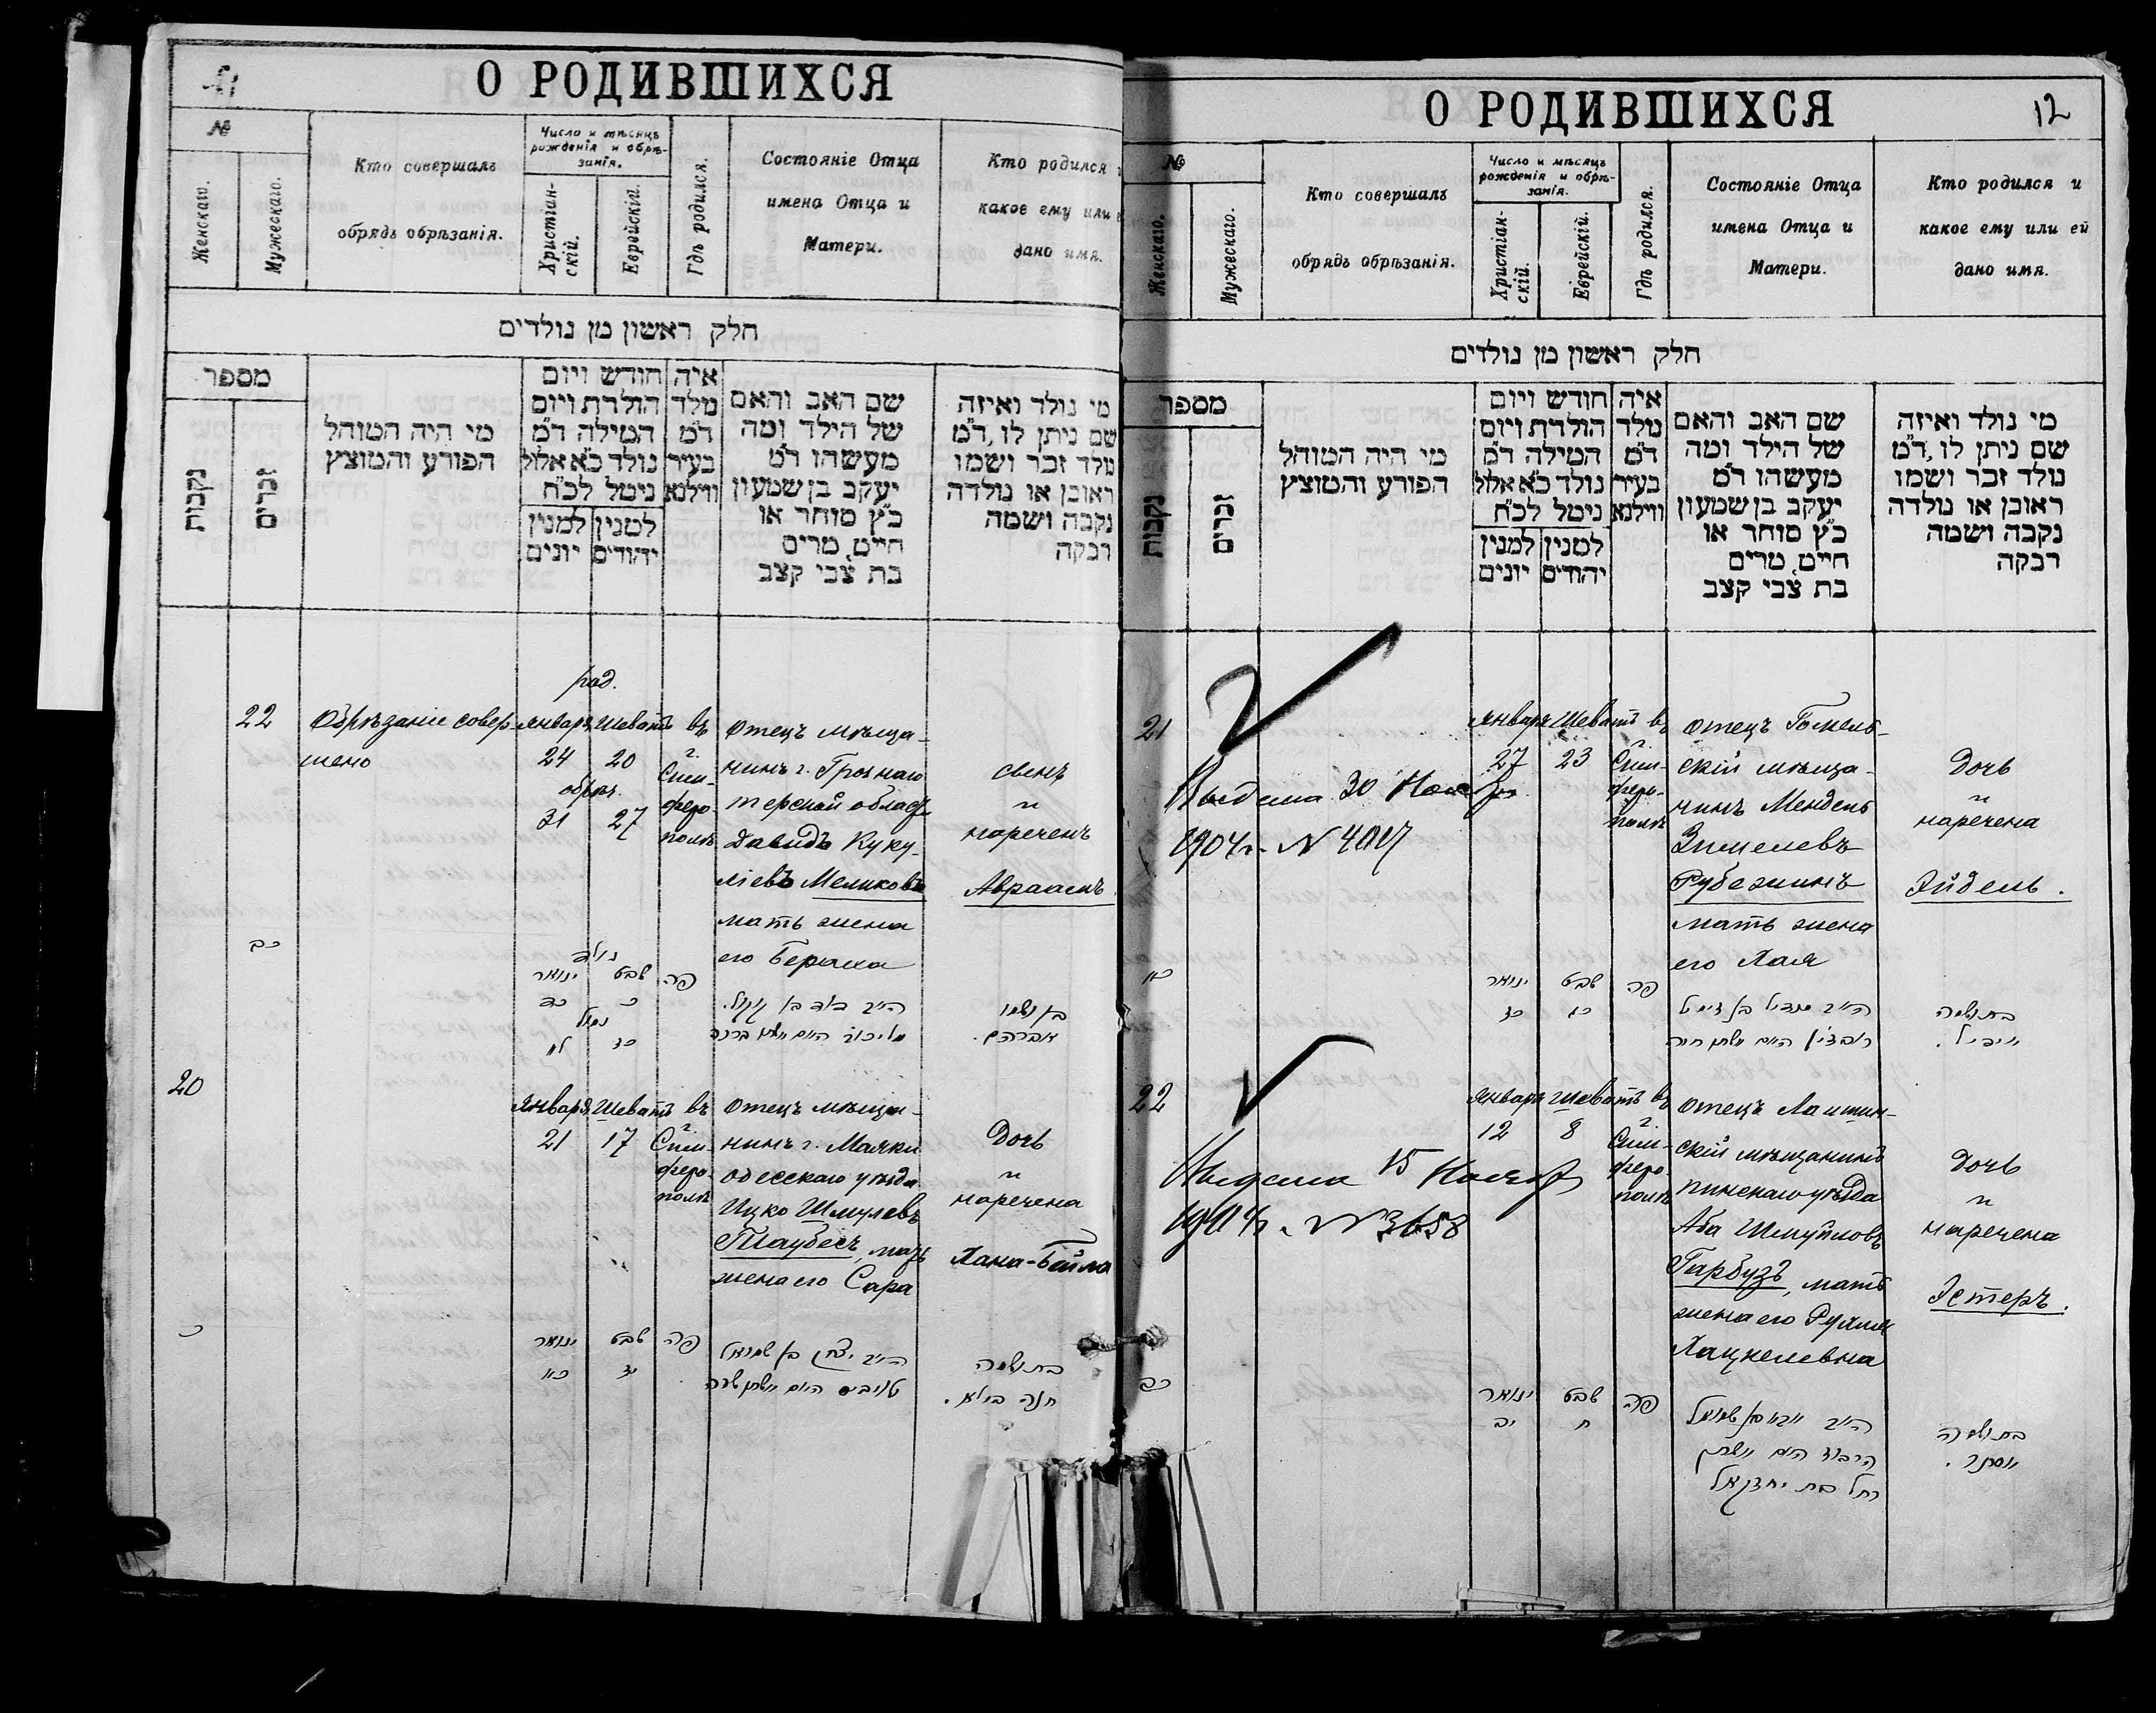 О РОДИВШИХСЯ
№
Женскаго.
Мужескаго.
Кто совершалъ
обрядъ обрѣзанія.
Число и мѣсяцъ
рожденія и обрѣ-
занія.
Христіан-
скій.
Еврейскій.
Гдѣ родился.
Состояніе Отца
имена Отца и
Матери.
Кто родился
какое ему или
дано имя.
חלק ראשון מן נולדים
מספר
נקבות
זכרים
מי היה המוהל
הפורע והמוצץ
חודש ויום
הולדת ויום
המילה ד״מ
נולד כ״א אלול
נימל לכ״ח
למנין יונים
למנין יהודים
איה
נולד
ד״מ
בעיר
ווילנא
שם האב והאם
של הילד ומה
מעשהו ד״מ
יעקב בן שמעון
כ״ץ סוחר או
חייט, מרים
בת צבי קצב
מי נולד ואיזה
שם ניתן לו, ד״מ
נולד זכר ושמו
ראובן או נולדה
נקבה ושמה
רבקה
22
Обрѣзаніе совер-
шено
род.
Январь Шеватъ
24 20
обрѣз.
31 27
въ
г.
Сим-
феро-
полѣ
отецъ мѣща-
нинъ г. Грознаго
терской област
Давидъ Куку-
ліевъ Меликовъ
мать жена
его Бераха
свенъ
и
нареченъ
Авраамъ
כב
נולד
ינואר שבט
כד כ
נימול
לא כז
פה
אברהם.
20
Январь Шеватъ
21 17
въ
г.
Сим-
феро-
полѣ
отецъ мѣща-
нинъ г. Маяки
одесскаго уѣзда
Ицко Шмулевъ
Таубесъ, мать
жена его Сара
Дочь
и
наречена
Хана-Бейла
כ
ינואר שבט
כא יז
פה
ה״ה יצחק בן שמואל
בת ושמה
חנה ביילא.
О РОДИВШИХСЯ
12
№
Женскаго.
Мужескаго.
Кто совершалъ
обрядъ обрѣзанія.
Число и мѣсяцъ
рожденія и обрѣ-
занія.
Христіан-
скій.
Еврейскій.
Гдѣ родился.
Состояніе Отца
имена Отца и
Матери.
Кто родился и
какое ему или ей
дано имя.
חלק ראשון מן נולדים
מספר
נקבות
זכרים
מי היה המוהל
הפורע והמוצץ
חודש ויום
הולדת ויום
המילה ד״מ
נולד כ״א אלול
נימל לכ״ח
למנין יונים
למנין יהודים
איה
נולד
ד״מ
בעיר
ווילנא
שם האב והאם
של הילד ומה
מעשהו ד״מ
יעקב בן שמעון
כ״ץ סוחר או
חייט, מרים
בת צבי קצב
מי נולד ואיזה
שם ניתן לו, ד״מ
נולד זכר ושמו
ראובן או נולדה
נקבה ושמה
רבקה
21
Выдана 30 Нояб
1904 г. N 4017
Январь Шеватъ
27 23
въ
г.
Сим-
феро-
полѣ
отецъ Гомель-
скій мѣща-
нинъ Мендель
Зимелевъ
Рубезинъ
мать жена
его Хая
Дочь
и
наречена
Эйдель.
כא
ינואר שבט
כז כג
פה
בת ושמה
22
Выдана 15 Нояб
1904 г. N 3658
Январь Шеватъ
12 8
въ
г.
Сим-
феро-
полѣ
отецъ Лашин-
скій мѣщанинъ
пинскаго уѣзда
Аба Шмуйловъ
Гарбузъ, мать
жена его Рухля
Хацкелевна
Дочь
и
наречена
Эстеръ.
כב
ינואר שבט
יב ח
פה
רחל בת יחזקאל
בת ושמה
אסתר.